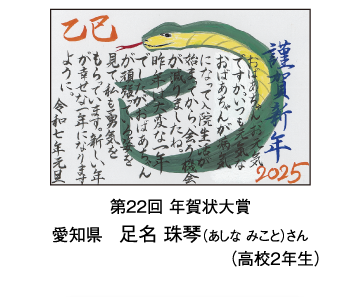 乙巳
謹賀新年
2025
おばあちゃん、お元気
ですか。いつも元気な
おばあちゃんが病気
になって入院生活が
始まってから、会う機会
が減りましたね。
昨年は大変な一年
でしたが、おばあちゃん
が頑張っている姿を
見て私も勇気を
もらっています。新しい年
が幸せな一年になります
ように。
令和七年元旦
第22回 年賀状大賞
愛知県 足名 珠琴(あしな みこと)さん
(高校2年生)